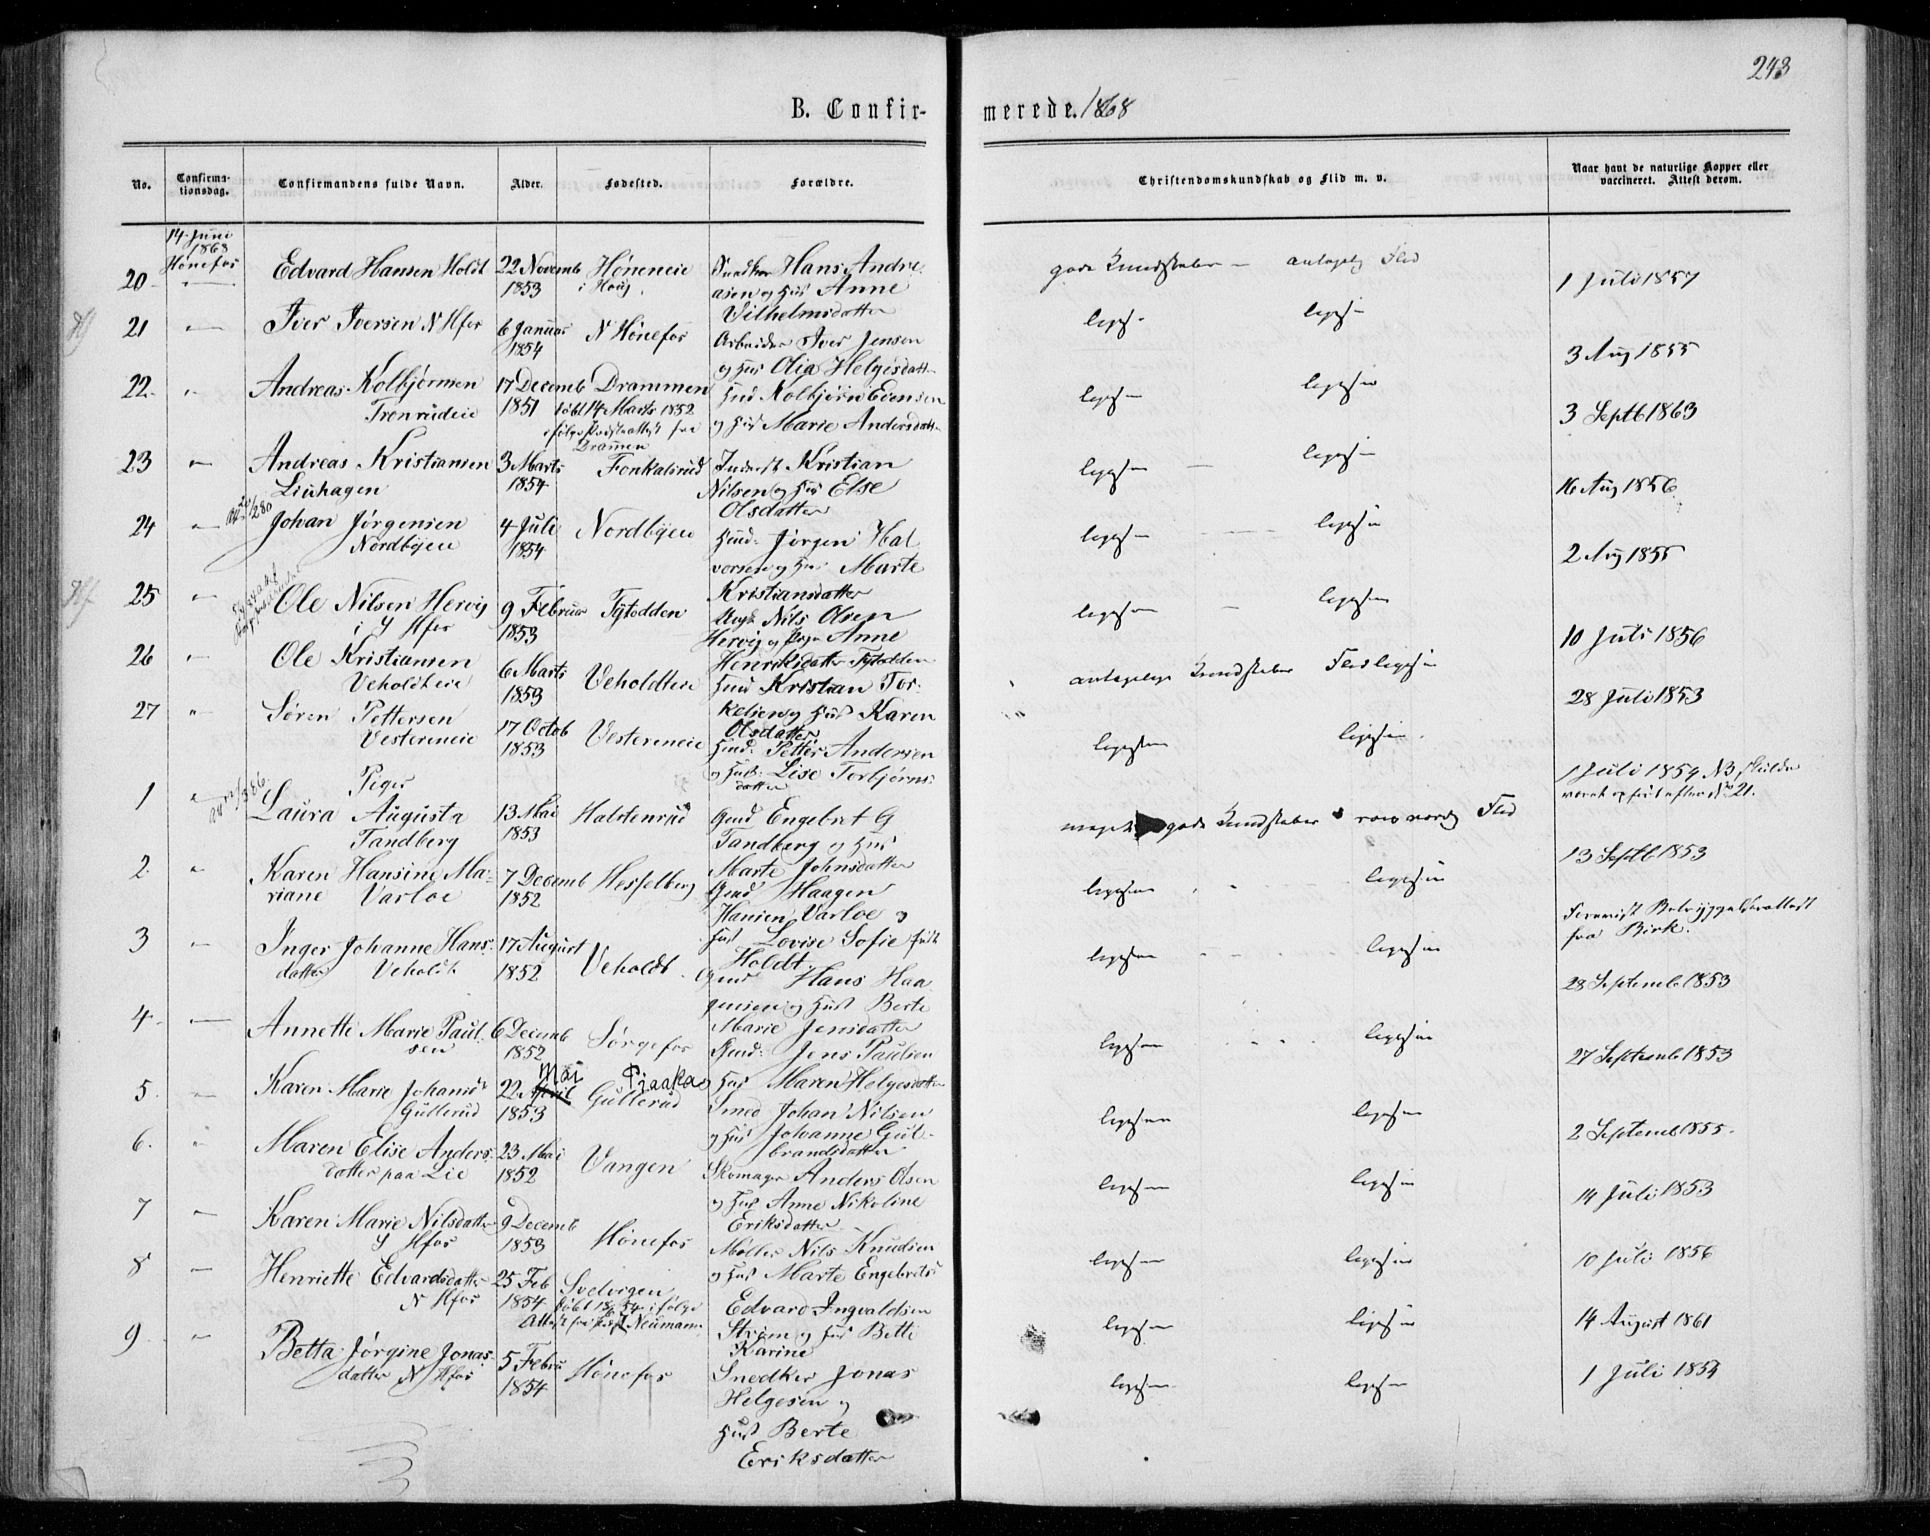 243
B. Confirmerede. 1868
No.
Confirmationsdag.
Confirmandens fulde Navn.
Alder.
Fødested.
Forældre.
Christendomskundskab og Flid m. v.
Naar havt de naturlige Kopper eller vaccineret. Attest derom.
14 Juni
1868
Hønefos
20 Edvard Hansen Holdt 22 Novemb 1853 Høneneie i Houg Snedker Hans Andreasen og Hus Anne Vilhelmsdatter
gode Kundskaber – antagelig Flid 1 Juli 1857
21 Iver Iversen N Hfos 6 Januar 1854 N Hønefos Arbeider Iver Jensen og Hus Olia Helgesdatter
ligesaa ligesaa 3 Aug 1855
22 Andreas Kolbjørnsen Tronrudeie 17 Decemb 1851 Drammen døbt 14 Marts 1852 ifølge Præsteattest fra Drammen Husd Kolbjørn Evensen og Hus Marie Andersdatter
ligesaa ligesaa 3 Septb 1863
23 Andreas Kristiansen Liuhagen 3 Marts 1854 Fonkalsrud Inderst Kristian Nilsen og Hus Else Olsdatter
ligesaa – ligesaa 16 Aug 1856
24 Johan Jørgensen Nordbyen 4 Juli 1854 Nordbyen Husd. Jørgen Halvorsen og Hus Marte Kristiansdatter
ligesaa ligesaa 2 Aug 1855
25 Ole Nilsen Hervig i S Hfos 9 Februar 1853 Tytodden Ungk Nils Olsen Hervig og Pige Anne Henriksdatter Tytodden
ligesaa – ligesaa 10 Juli 1856
26 Ole Kristiansen Veholdteie 6 Marts 1853 Veholdteie Husd Kristian Torkelsen og Hus Karen Olsdatter
antagelige Kundskaber Flid ligesaa 28 Juli 1853
27 Søren Pettersen Vestereneie 17 Octob 1853 Vestereneie Husd. Petter Andersen og Hus. Lise Torbjørnsdatter
ligesaa ligesaa 1 Juli 1854 NB skulde været opført efter No 21.
Piger
1 Laura Augusta Tandberg 13 Mai 1853 Halstenrud Gmd Engebret G Tandberg og Hus Marte Johnsdatter
meget gode Kundskaber Flid 13 Septb 1853
2. Karen Hansine Mariane Varloe 7 Decemb 1852 Hesselberg Gmd Haagen Hansen Varloe og Hus Lovise Sofie født Holdt
ligesaa ligesaa Forevist Beskyggelsesattest fra Birk.
3 Inger Johanne Hansdatter Veholdt 17 August 1852 Veholdt Gmd Hans Haagensen og Hus Berte Marie Jensdatter
ligesaa ligesaa 28 Septemb 1853
4 Annette Marie Paulsen 6 Decemb 1852 Sørgefos Gmd. Jens Paulsen og Hus Maren Helgesdatter
ligesaa ligesaa 27 Septemb 1853
5. Karen Marie Johansdt Gullerud 22 April Mai 1853 Gullerud Piaaka Smed Johan Nilsen og Hus Johanne Gulbrandsdatter
ligesaa ligesaa 2 Septemb 1855.
6. Maren Elise Andersdatter paa Lie 23 Mai 1852 Vangen Skomager Anders Olsen og Hus Anne Nikoline Eriksdatter
ligesaa ligesaa 14 Juli 1853
7 Karen Marie Nilsdatter S Hfos 9 Decemb 1853 Hønefos Møller Nils Knudsen og Hus Marte Engebrets
ligesaa ligesaa 10 Juli 1856
8 Henriette Edvardsdatter N Hfos 25 Feb 1854 Svelvigen døbt 18/6 54 ifølge Attest fra Præst Neumann Edvard Ingvaldsen Strøm og Hus Betti Karine
ligesaa ligesaa 14 August 1861
9 Betta Jørgine Jonasdatter N Hfos 5 Febru 1854 Hønefos Snedker Jonas Helgesen og Hus Berte Eriksdatter
ligesaa ligesaa 1 Juli 1854